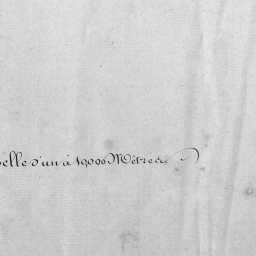 elle d'un à 10,000 Mètres